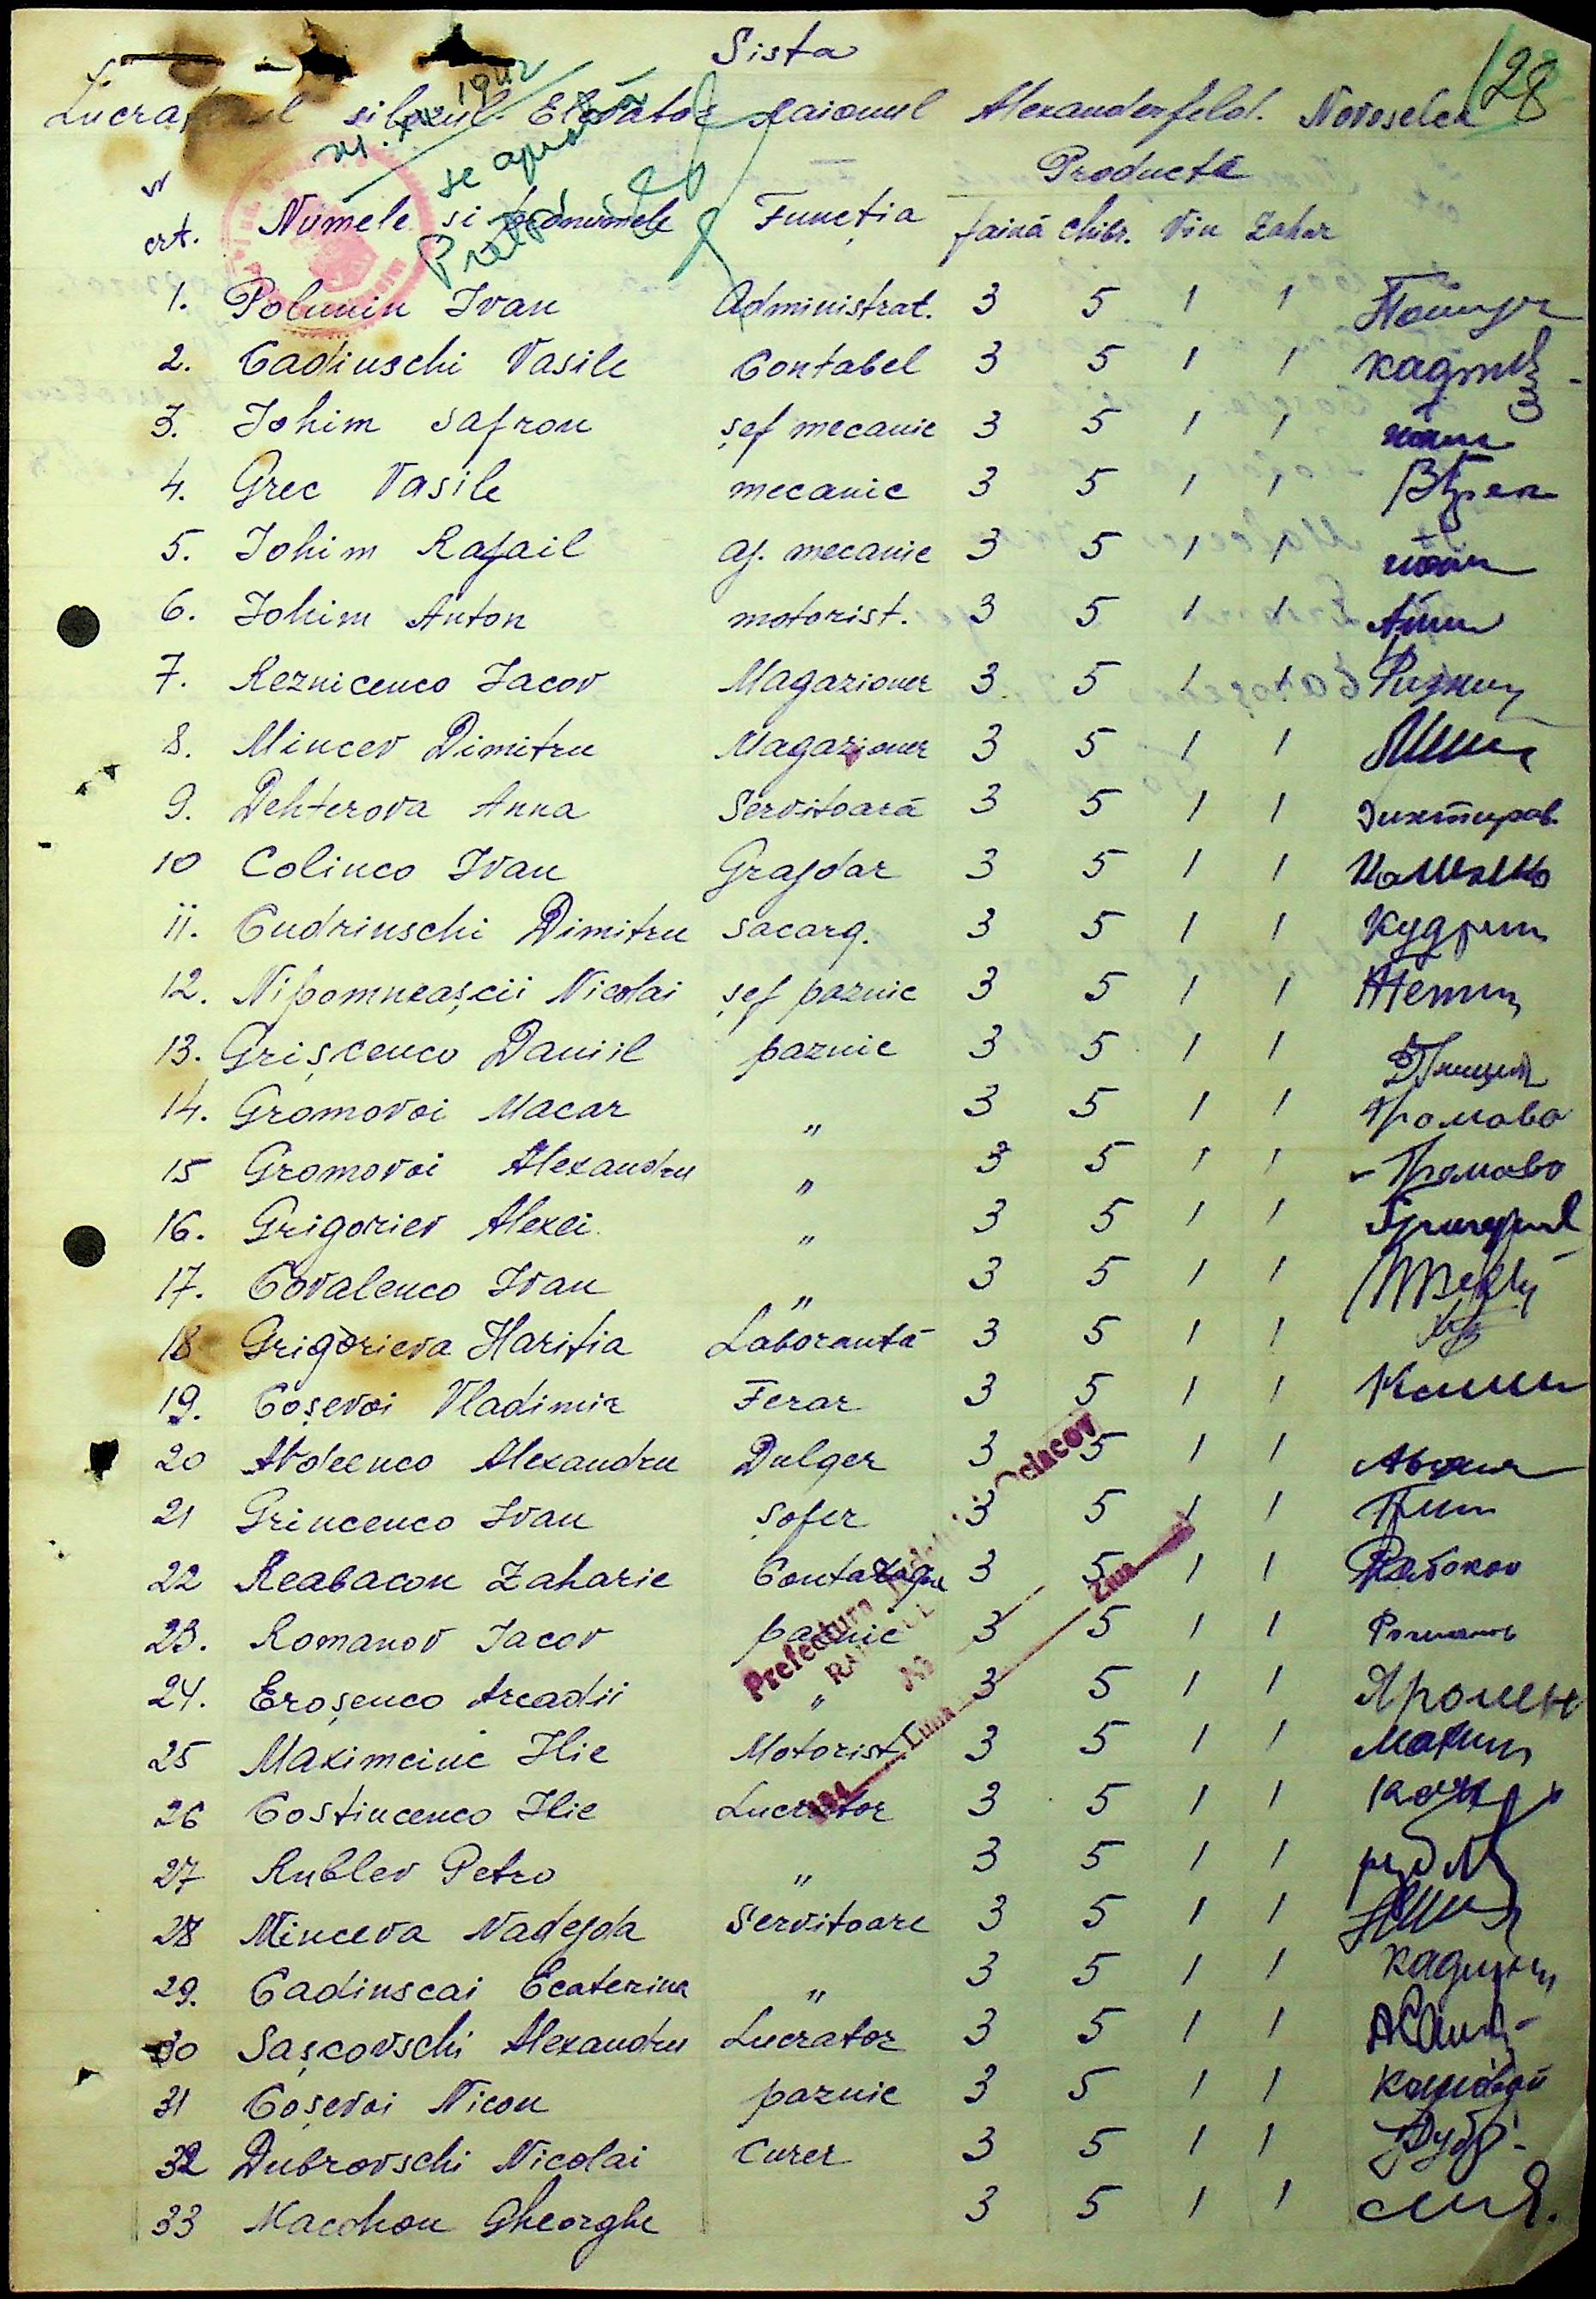 Lista
128
silozul Elevator raionul Alexanderfeld. Novoselca
1942
se aprobă
Producte
crt. Numele si pronumele Funcția faină chibr. Vin Zahar
1. Polunin Ivan Administrat. 3 5 1 1
2. Cadinschi Vasile Contabel 3 5 1 1
3. Iohim Safron șef mecanic 3 5 1 1
4. Grec Vasile mecanic 3 5 1 1 ВГрек
5. Iohim Rafail aj. mecanic 3 5 1 1
6. Iohim Anton motorist. 3 5 1 1
7. Reznicenco Iacov Magazioner 3 5 1 1
8. Mincev Dimitru Magazioner 3 5 1 1
9. Dehterova Anna Servitoară 3 5 1 1 Дихтиров
10 Colinco Ivan Grajdar 3 5 1 1
11. Cudrinschi Dimitru sacarg. 3 5 1 1 Кудрин
12. Nipomneașcii Nicolai șef paznic 3 5 1 1
13. Grișcenco Daniil paznic 3 5 1 1
14. Gromovoi Macar " 3 5 1 1 Громово
15 Gromovoi Alexandru " 3 5 1 1 Громово
16. Grigoriev Alexei " 3 5 1 1
17. Covalenco Ivan " 3 5 1 1
18 Grigorieva Haritia Laborantă 3 5 1 1
19. Coșevoi Vladimir Ferar 3 5 1 1
20 Avdeenco Alexandru Dulger 3 5 1 1
21 Grincenco Ivan Șofer 3 5 1 1
22 Reabacon Zaharie 3 5 1 1 Рябокон
23. Romanov Iacov paznic 3 5 1 1 Романов
24. Eroșenco Arcadii " 3 5 1 1 Ярошен
25 Maximciuc Ilie Motorist 3 5 1 1
26 Costincenco Ilie Lucrator 3 5 1 1
27 Rublev Petro " 3 5 1 1
28 Minceva Nadejda Servitoare 3 5 1 1
29. Cadinscai Ecaterina " 3 5 1 1
30 Sașcovschi Alexandru Lucrator 3 5 1 1
31 Coșevoi Nicon paznic 3 5 1 1 Кошовой
32 Dubrovschi Nicolai Curer 3 5 1 1
33 Macohon Gheorghe 3 5 1 1
Prefectura Ociacov
194 Luna Ziua